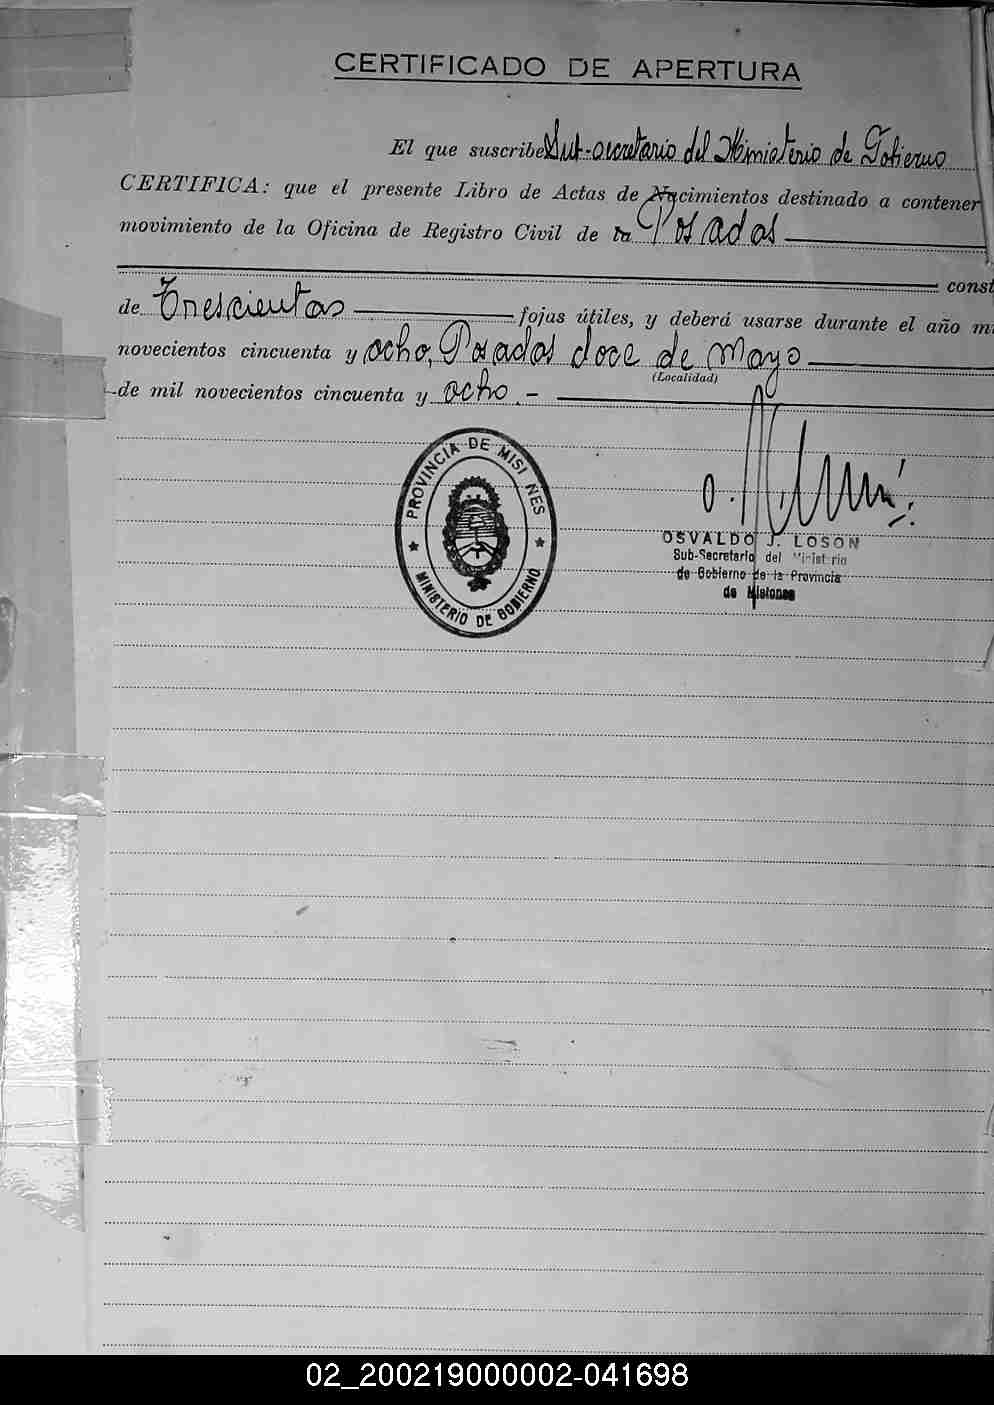 CERTIFICADO DE APERTURA
El que suscribe Sub-secretario del Ministerio de Gobierno
CERTIFICA: que el presente Libro de Actas de Nacimientos destinado a contener
movimiento de la Oficina de Registro Civil de la Posadas
const
de Trescientas fojas útiles, y deberá usarse durante el año m
novecientos cincuenta y ocho, Posadas doce de Mayo
(Localidad)
de mil novecientos cincuenta y ocho.-
PROVINCIA DE MISI NES
MINISTERIO DE GOBIERNO
OSVALDO J. LOSON
Sub-Secretario del Ministerio
de Gobierno de la Provincia
de Misiones
02_200219000002-041698